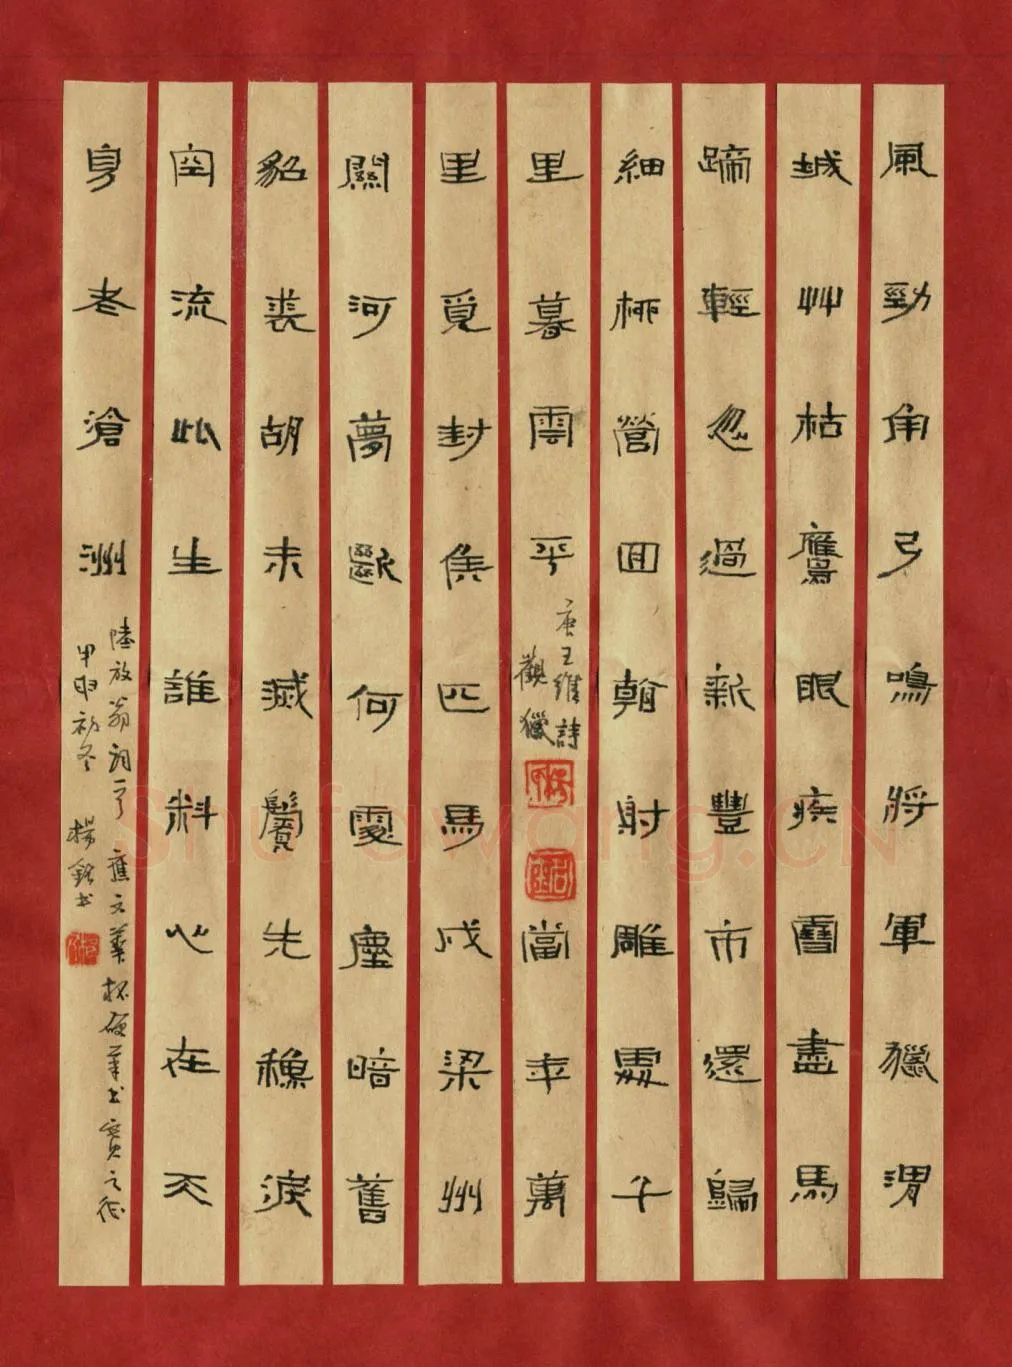 風勁角弓鳴將軍獵渭
城艸枯鷹眼疾雪盡馬
蹄輕忽過新豐市還歸
細桺營回看射雕處千
里暮雲平
唐王維詩
觀獵
當年萬
里覓封侯匹馬戍梁州
關河夢斷何處塵暗舊
貂裘胡未滅鬢先穐淚
空流此生誰料心在天
身老滄洲
陸放翁詞一首 應文華杯硬筆書賽之徵
甲申初冬 楊銘書
Shufawang.CN